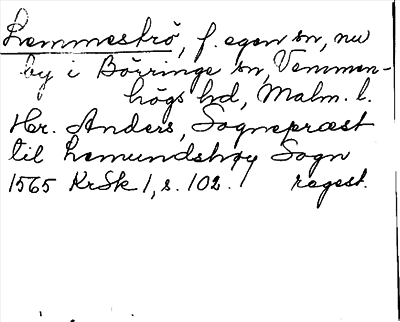 Lemmeströ, f. egen sn, nu
by i Börringe sn, Vemmen-
högs hd, Malm. l.
Hr. Anders, Sognepræst
til Lemundshøy Sogn
1565 KrSk 1, s. 102. regest.